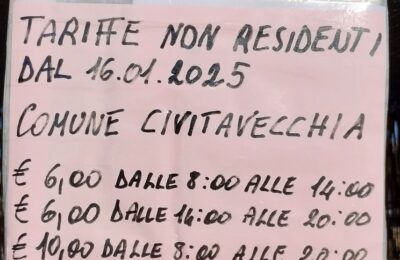 TARIFFE NON RESIDENTI
DAL 16.01.2025
COMUNE CIVITAVECCHIA
€ 6,00 DALLE 8:00 ALLE 14:00
€ 6,00 DALLE 14:00 ALLE 20:00
€ 10,00 DALLE 8:00 ALLE 20:00